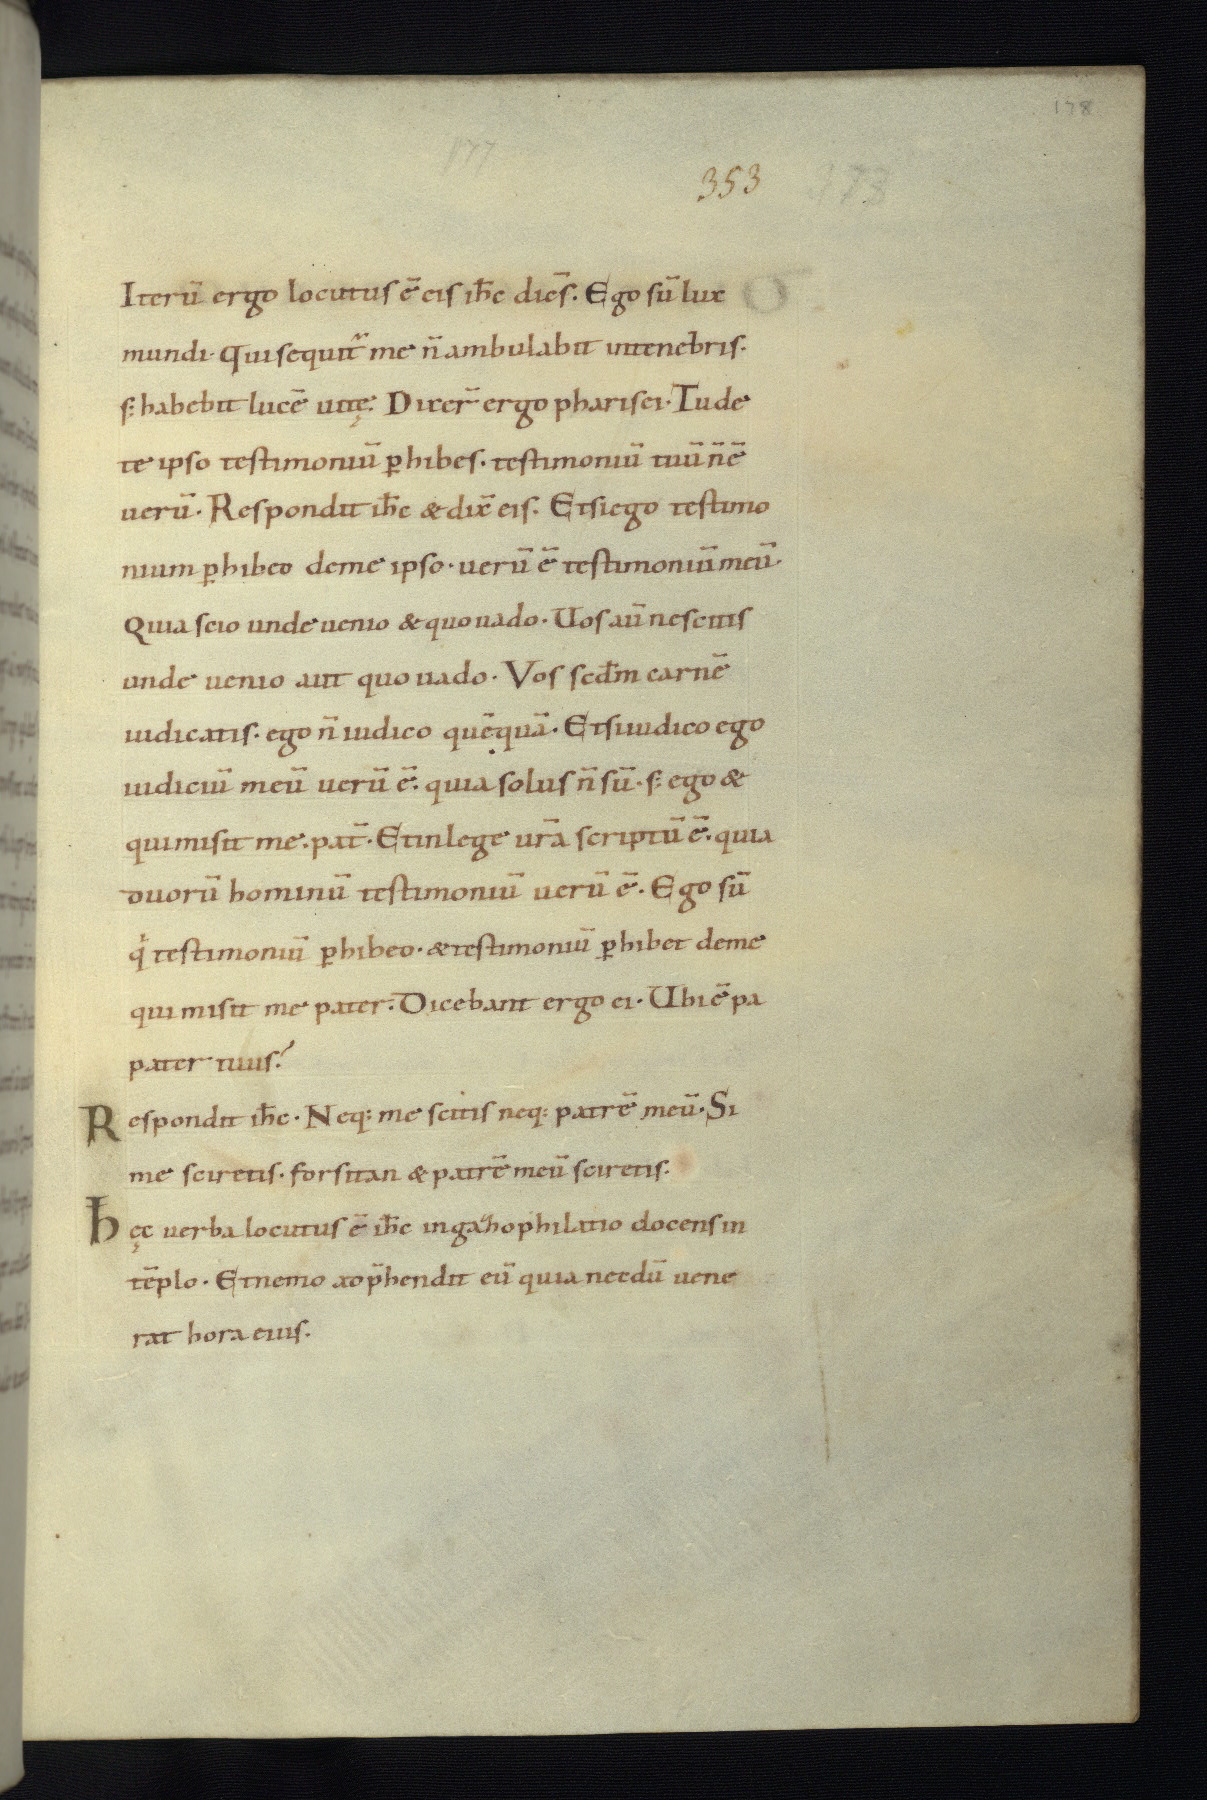 178
177
353 178
Iterū ergo locutus ē eis ih̄c dicēs. Ego sū lux
mundi. Qui sequit᷑ me n̄ ambulabit intenebris.
s; habebit lucē uitę. Dixer̄ ergo pharisei. Tu de
te ipso testimoniū ꝑhibes. testimoniū tuū n̄ ē
uerū. Respondit ih̄c & dix̄ eis. Etsi ego testimo
nium ꝑhibeo deme ipso. uerū ē testimoniū meū.
Quia scio unde uenio & quo uado. Uos aū nescitis
unde uenio aut quo uado. Vos scd̄m carnē
iudicatis. ego n̄ iudico quēquā. Etsi iudico ego
iudiciū meū uerū ē. quia solus n̄ sū. s; ego &
qui misit me. pat̄. Et in lege ur̄a scriptū ē. quia
duorū hominū testimoniū uerū ē. Ego sū
qͥ testimoniū ꝑhibeo. & testimoniū ꝑhibet deme
qui misit me pater. Dicebant ergo ei. Ubi ē pa
pater tuus?
Respondit ih̄c. Neq; me scitis neq; patrē meū. Si
me sciretis. forsitan & patrē meū sciretis.
hęc uerba locutus ē ih̄c in gazophilatio docens in
tēplo. Et nemo adp̄hendit eū quia necdū uene
rat hora eius.